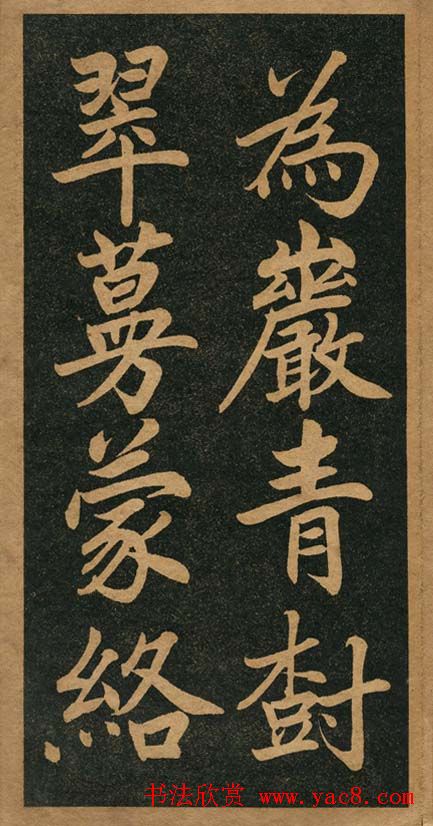 為巖青樹
翠蔓蒙絡
书法欣赏 www.yac8.com